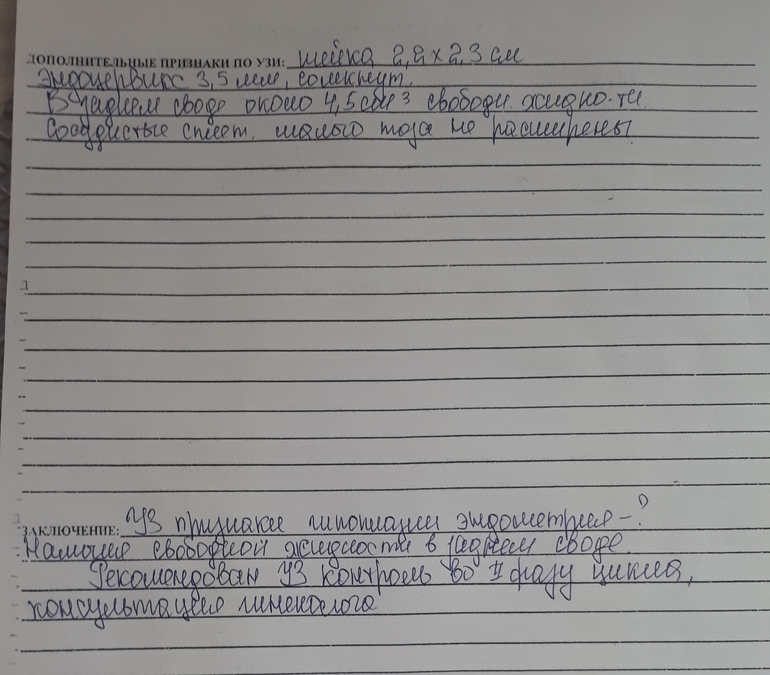 ДОПОЛНИТЕЛЬНЫЕ ПРИЗНАКИ ПО УЗИ: шейка 2,2 х 2,3 см
Эндоцервикс 3,5 мм, сомкнут.
В заднем своде около 4,5 см³ свободн. жидко-ти.
Сосудистые сплет. малого таза не расширены
ЗАКЛЮЧЕНИЕ: УЗ признаки гипоплазии эндометрия - ?
Наличия свободной жидкости в заднем своде.
Рекомендован УЗ контроль во II фазу цикла,
консультация гинеколога